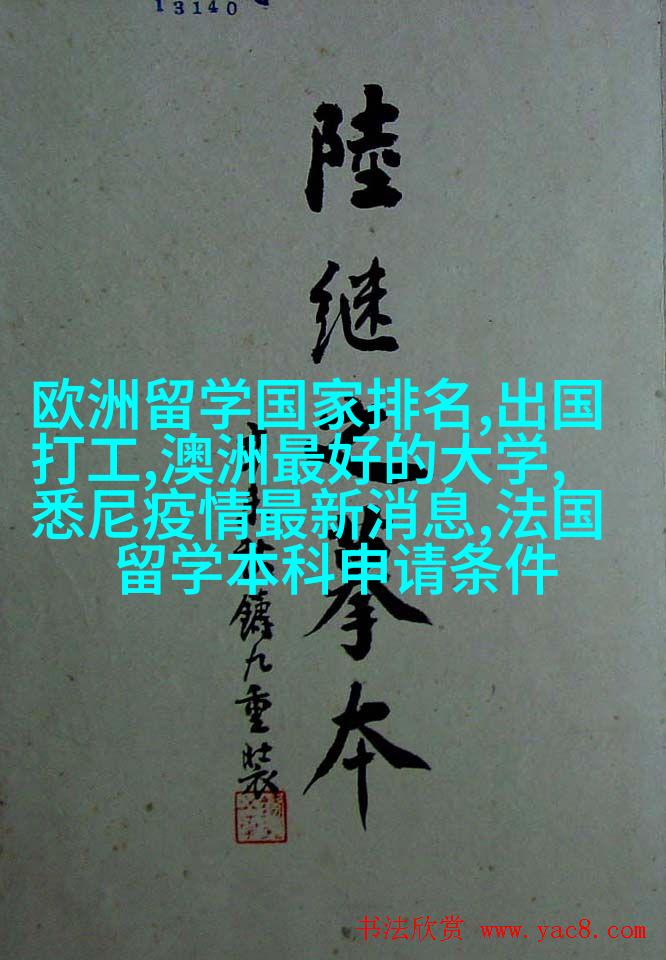 13140
陸继之摹本
鑄九重裝
欧洲留学国家排名,出国
打工,澳洲最好的大学,
悉尼疫情最新消息,法国
留学本科申请条件
书法欣赏 www.yac8.com